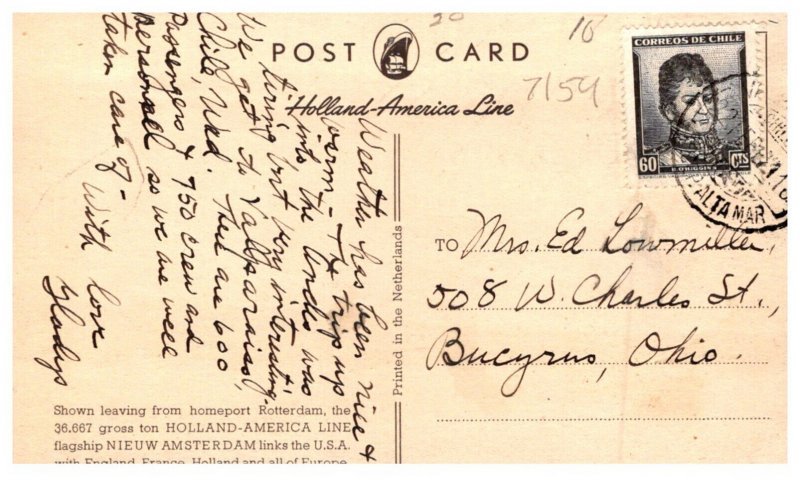 20
10
POST CARD
7/54
Holland-America Line
CORREOS DE CHILE
60 CTS
O'HIGGINS
ALTA MAR
Weather has been nice &
warm - The trip up
into the Andes was
tiring but very interesting.
We get to Valparaiso,
Chile, Wed. There are 600
Passengers & 750 crew and
personnel so we are well
taken care of - With love
Gladys
Printed in the Netherlands
TO Mrs. Ed Lowmiller,
508 W. Charles St.,
Bucyrus, Ohio.
Shown leaving from homeport Rotterdam, the
36.667 gross ton HOLLAND-AMERICA LINE
flagship NIEUW AMSTERDAM links the U.S.A.
with England, France, Holland and all of Europe